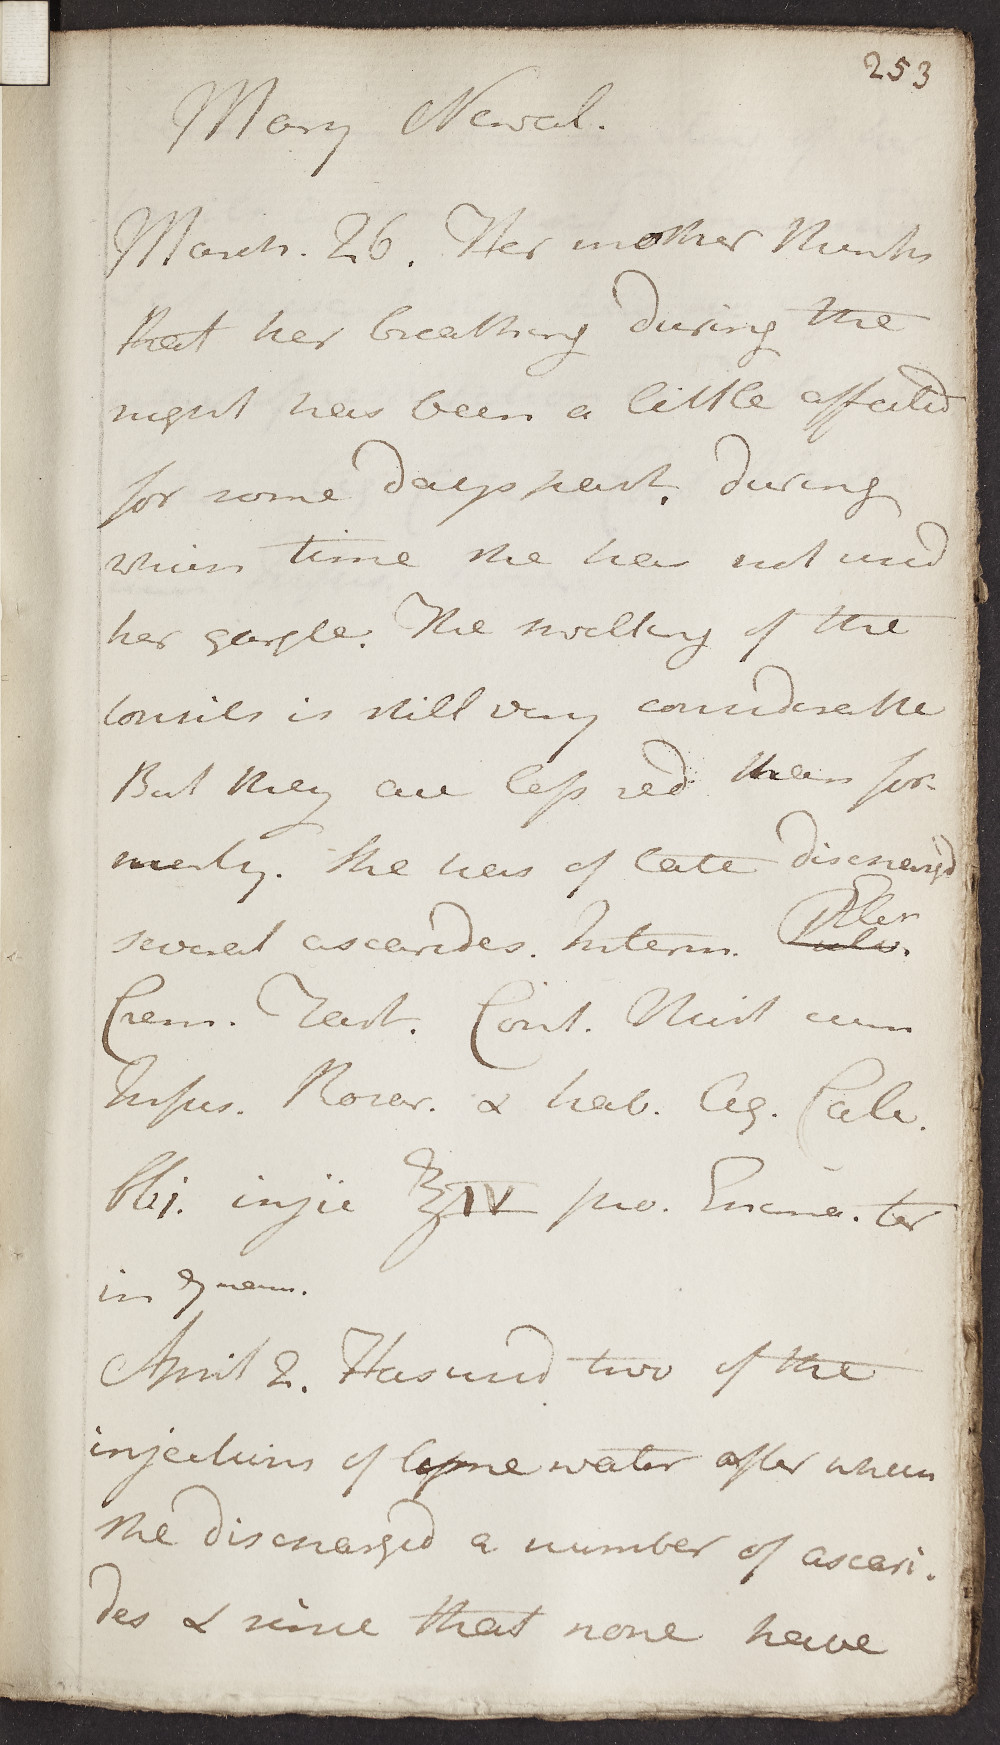 253
Mary Newal.
March. 26. Her mother thinks
that her breathing during the
night has been a little affected
for some days past, during
which time she has not used
her gargle. The swelling of the
tonsils is still very considerable
But they are less red than for-
merly. She has of late discharg'd
several ascarides. Interm. Pulv.
Eler
Crem. Tart. Cont. Mist cum
Infus. Rosar. & hab. Aq. Calc.
lbj. injic ℥IV pro. Enema. ter
in
April 2. Has used two of the
injections of lyme water after which
she discharged a number of ascari-
des & since that none have